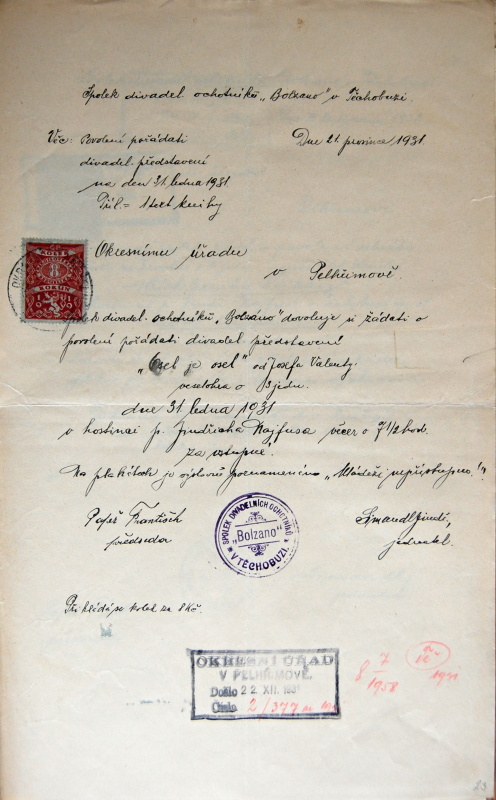 Spolek divadel. ochotníků „Bolzano" v Těchobuzi.
Věc: Povolení pořádati
Dne 21. prosince 1931
divadel. představení
na den 31. ledna 1931
Příl. = 1 text knihy
Okresnímu úřadu
v Pelhřimově.
8
Spolek divadel. ochotníků „Bolzano" dovoluje si žádati o
povolení pořádati divadel. představení
„Osel je osel" od Josefa Valenty.
veselohra o 3 jedn.
dne 31. ledna 1931
v hostinci p. Jindřicha Kajfusa večer o 7 1/2 hod.
za vstupné.
Na plakátech je výslovně poznamenáno „Mládeži nepřístupno!"
František
předseda
SPOLEK DIVADELNÍCH OCHOTNÍKŮ
„Bolzano"
V TĚCHOBUZI.
jednatel.
Přikládá se kolek za 8 Kč.
OKRESNÍ ÚŘAD
V PELHŘIMOVĚ.
Došlo 22. XII. 1931
Číslo 2/377
8 7/1958
23